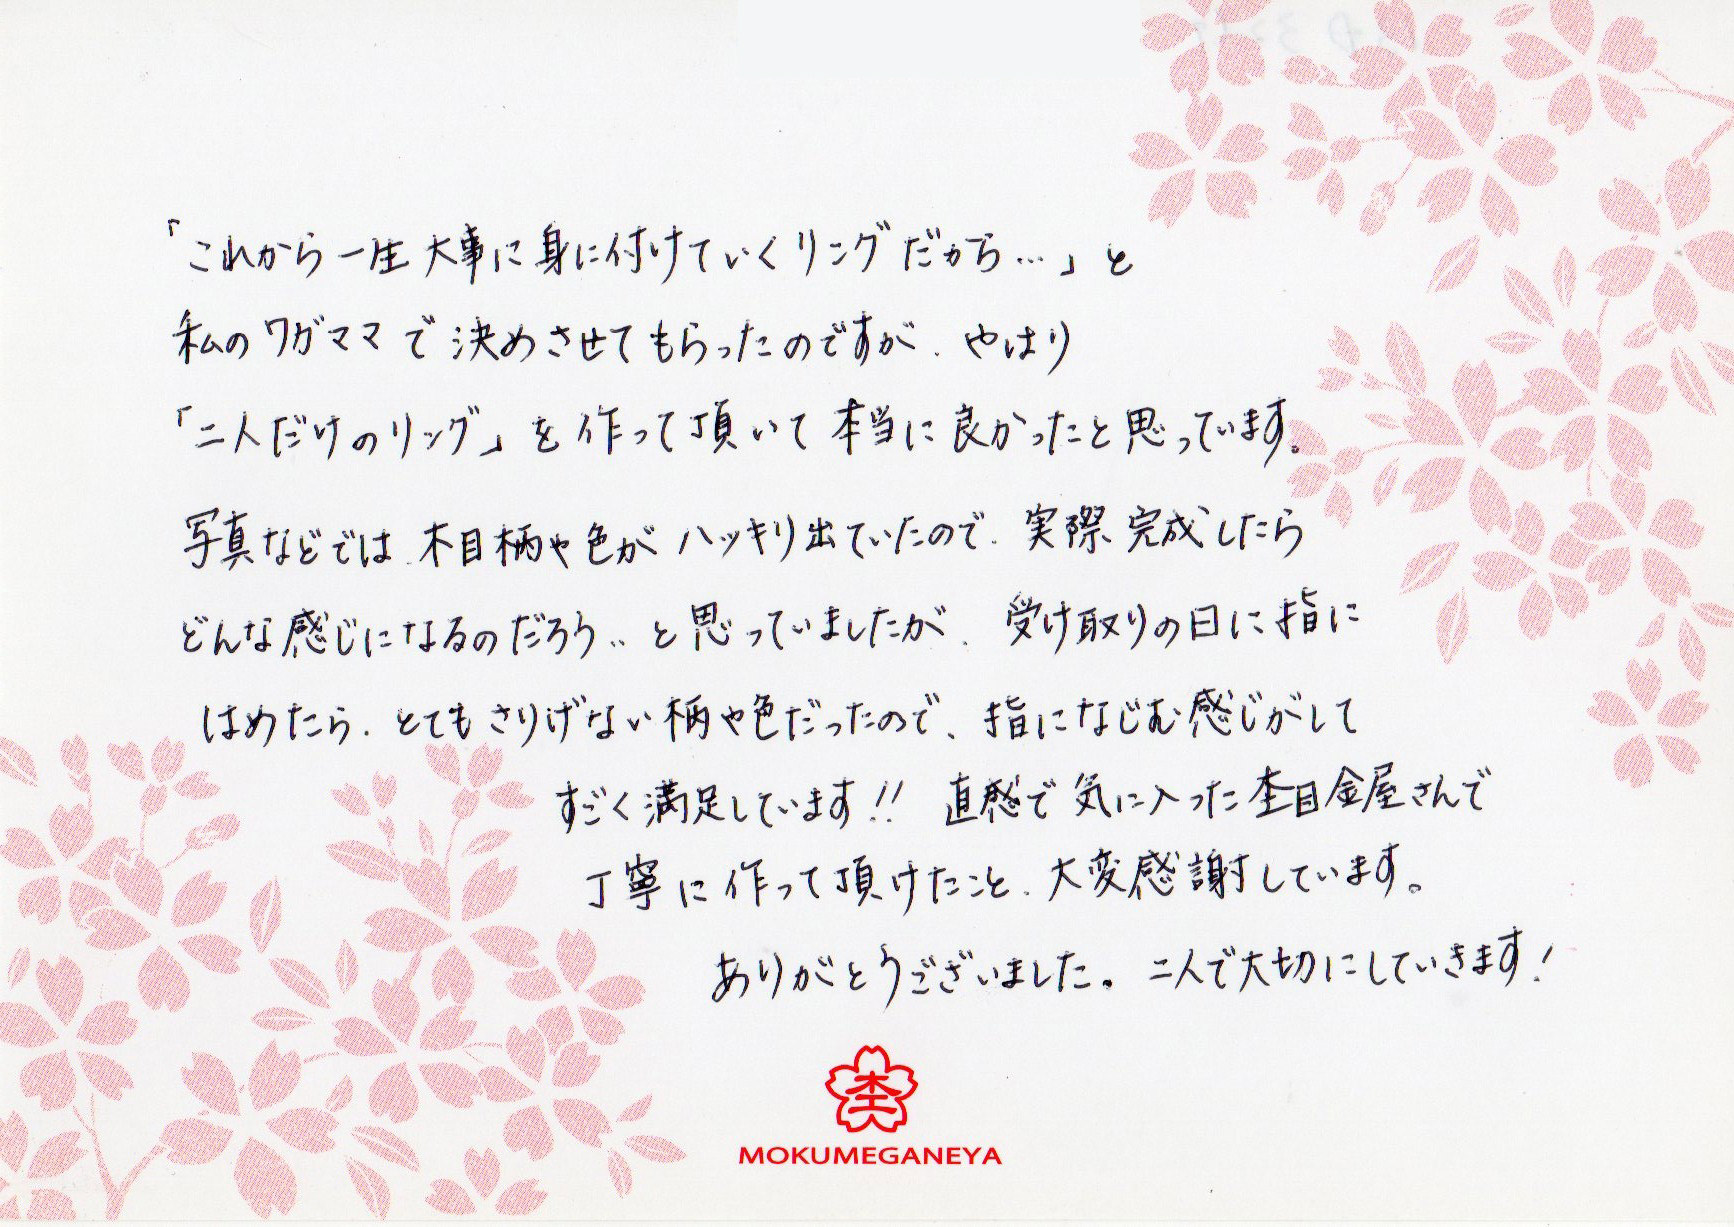 「これから一生大事に身に付けていくリングだから…」と
私のワガママで決めさせてもらったのですが、やはり
「二人だけのリング」を作って頂いて本当に良かったと思っています。
写真などでは、木目柄や色がハッキリ出ていたので、実際完成したら
どんな感じになるのだろう‥と思っていましたが、受け取りの日に指に
はめたら、とてもさりげない柄や色だったので、指になじむ感じがして
すごく満足しています!! 直感で気に入った杢目金屋さんで
丁寧に作って頂けたこと、大変感謝しています。
ありがとうございました。二人で大切にしていきます!
杢
MOKUMEGANEYA